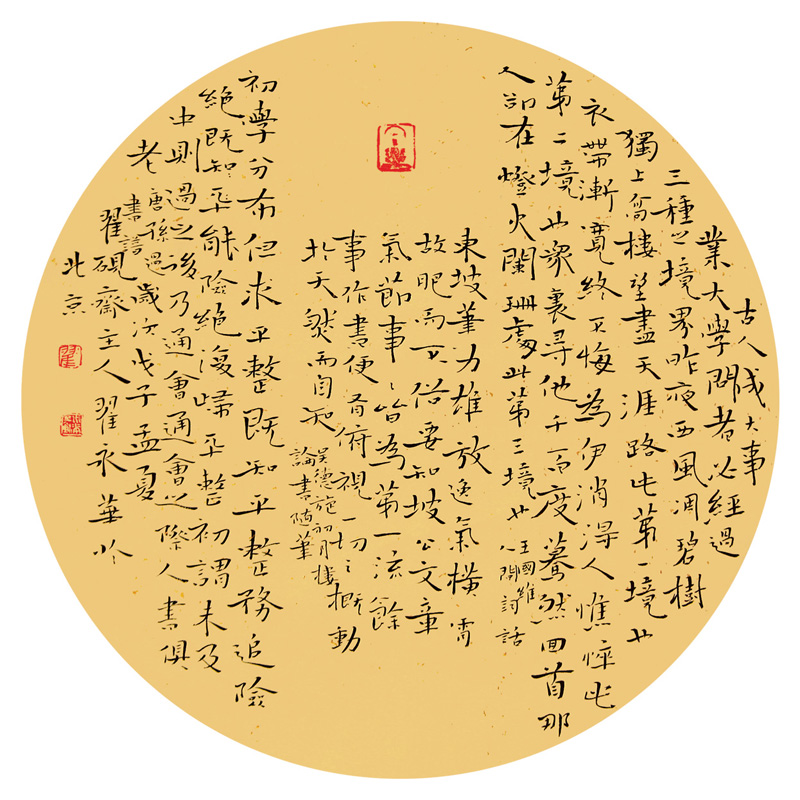 古人成大事
業大學問者必經過
三種之境界昨夜西風凋碧樹
獨上高樓望盡天涯路此第一境也
衣帶漸寬終不悔為伊消得人憔悴此
第二境也眾裏尋他千百度驀然回首那
人卻在燈火闌珊處此第三境也
王國維
人間詩話
東坡筆力雄放逸氣橫霄
故肥而不俗要知坡公文章
氣節事〻皆為第一流餘
事作書便有俯視一切之概動
於天然而自知
吳德旋初月樓
論書隨筆
初學分布但求平整既知平整務追險
絕既知平能險絕復歸平整初謂未及
中則過之後乃通會通會之際人書俱
老
唐孫過
書譜
歲次戊子孟夏
翟硯齋主人翟永華於
北京